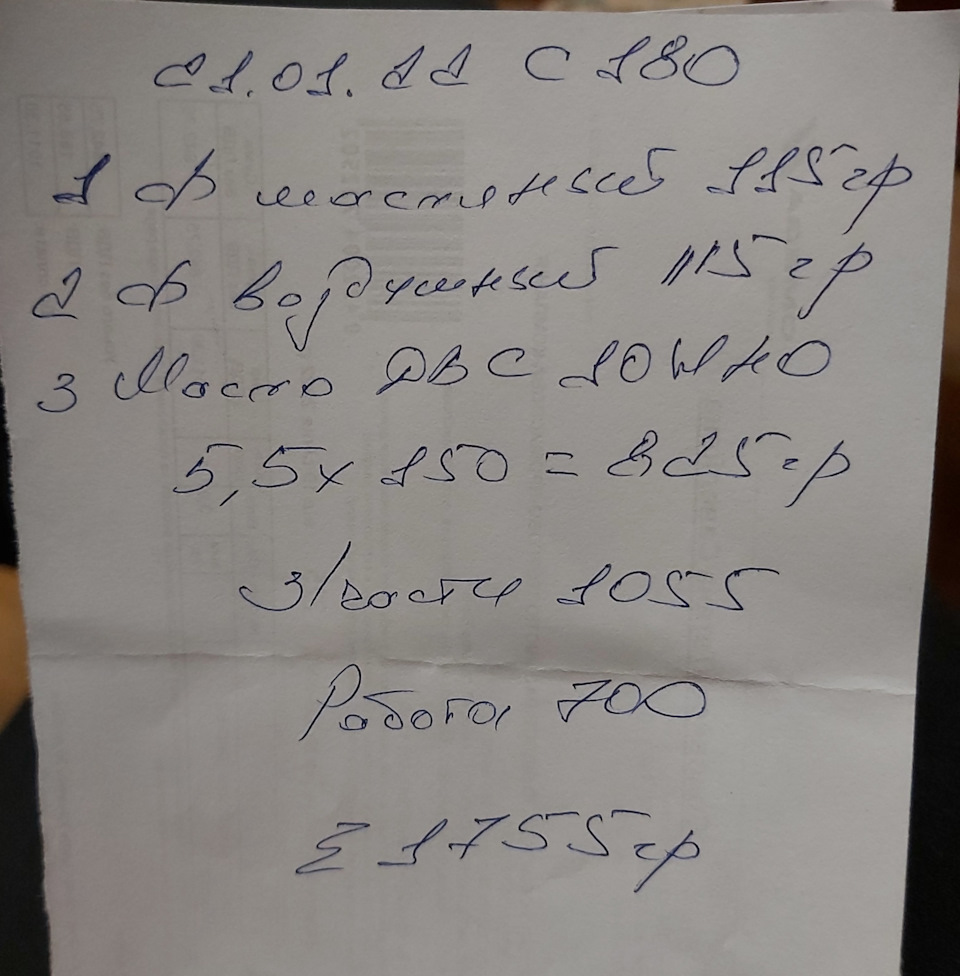 21.01.22 С 180
1 ф масляный 115гр
2 ф воздушный 115гр
3 Масло ДВС 10W40
5,5х 150 = 825гр
З/части 1055
Работа 700
Σ 1755гр